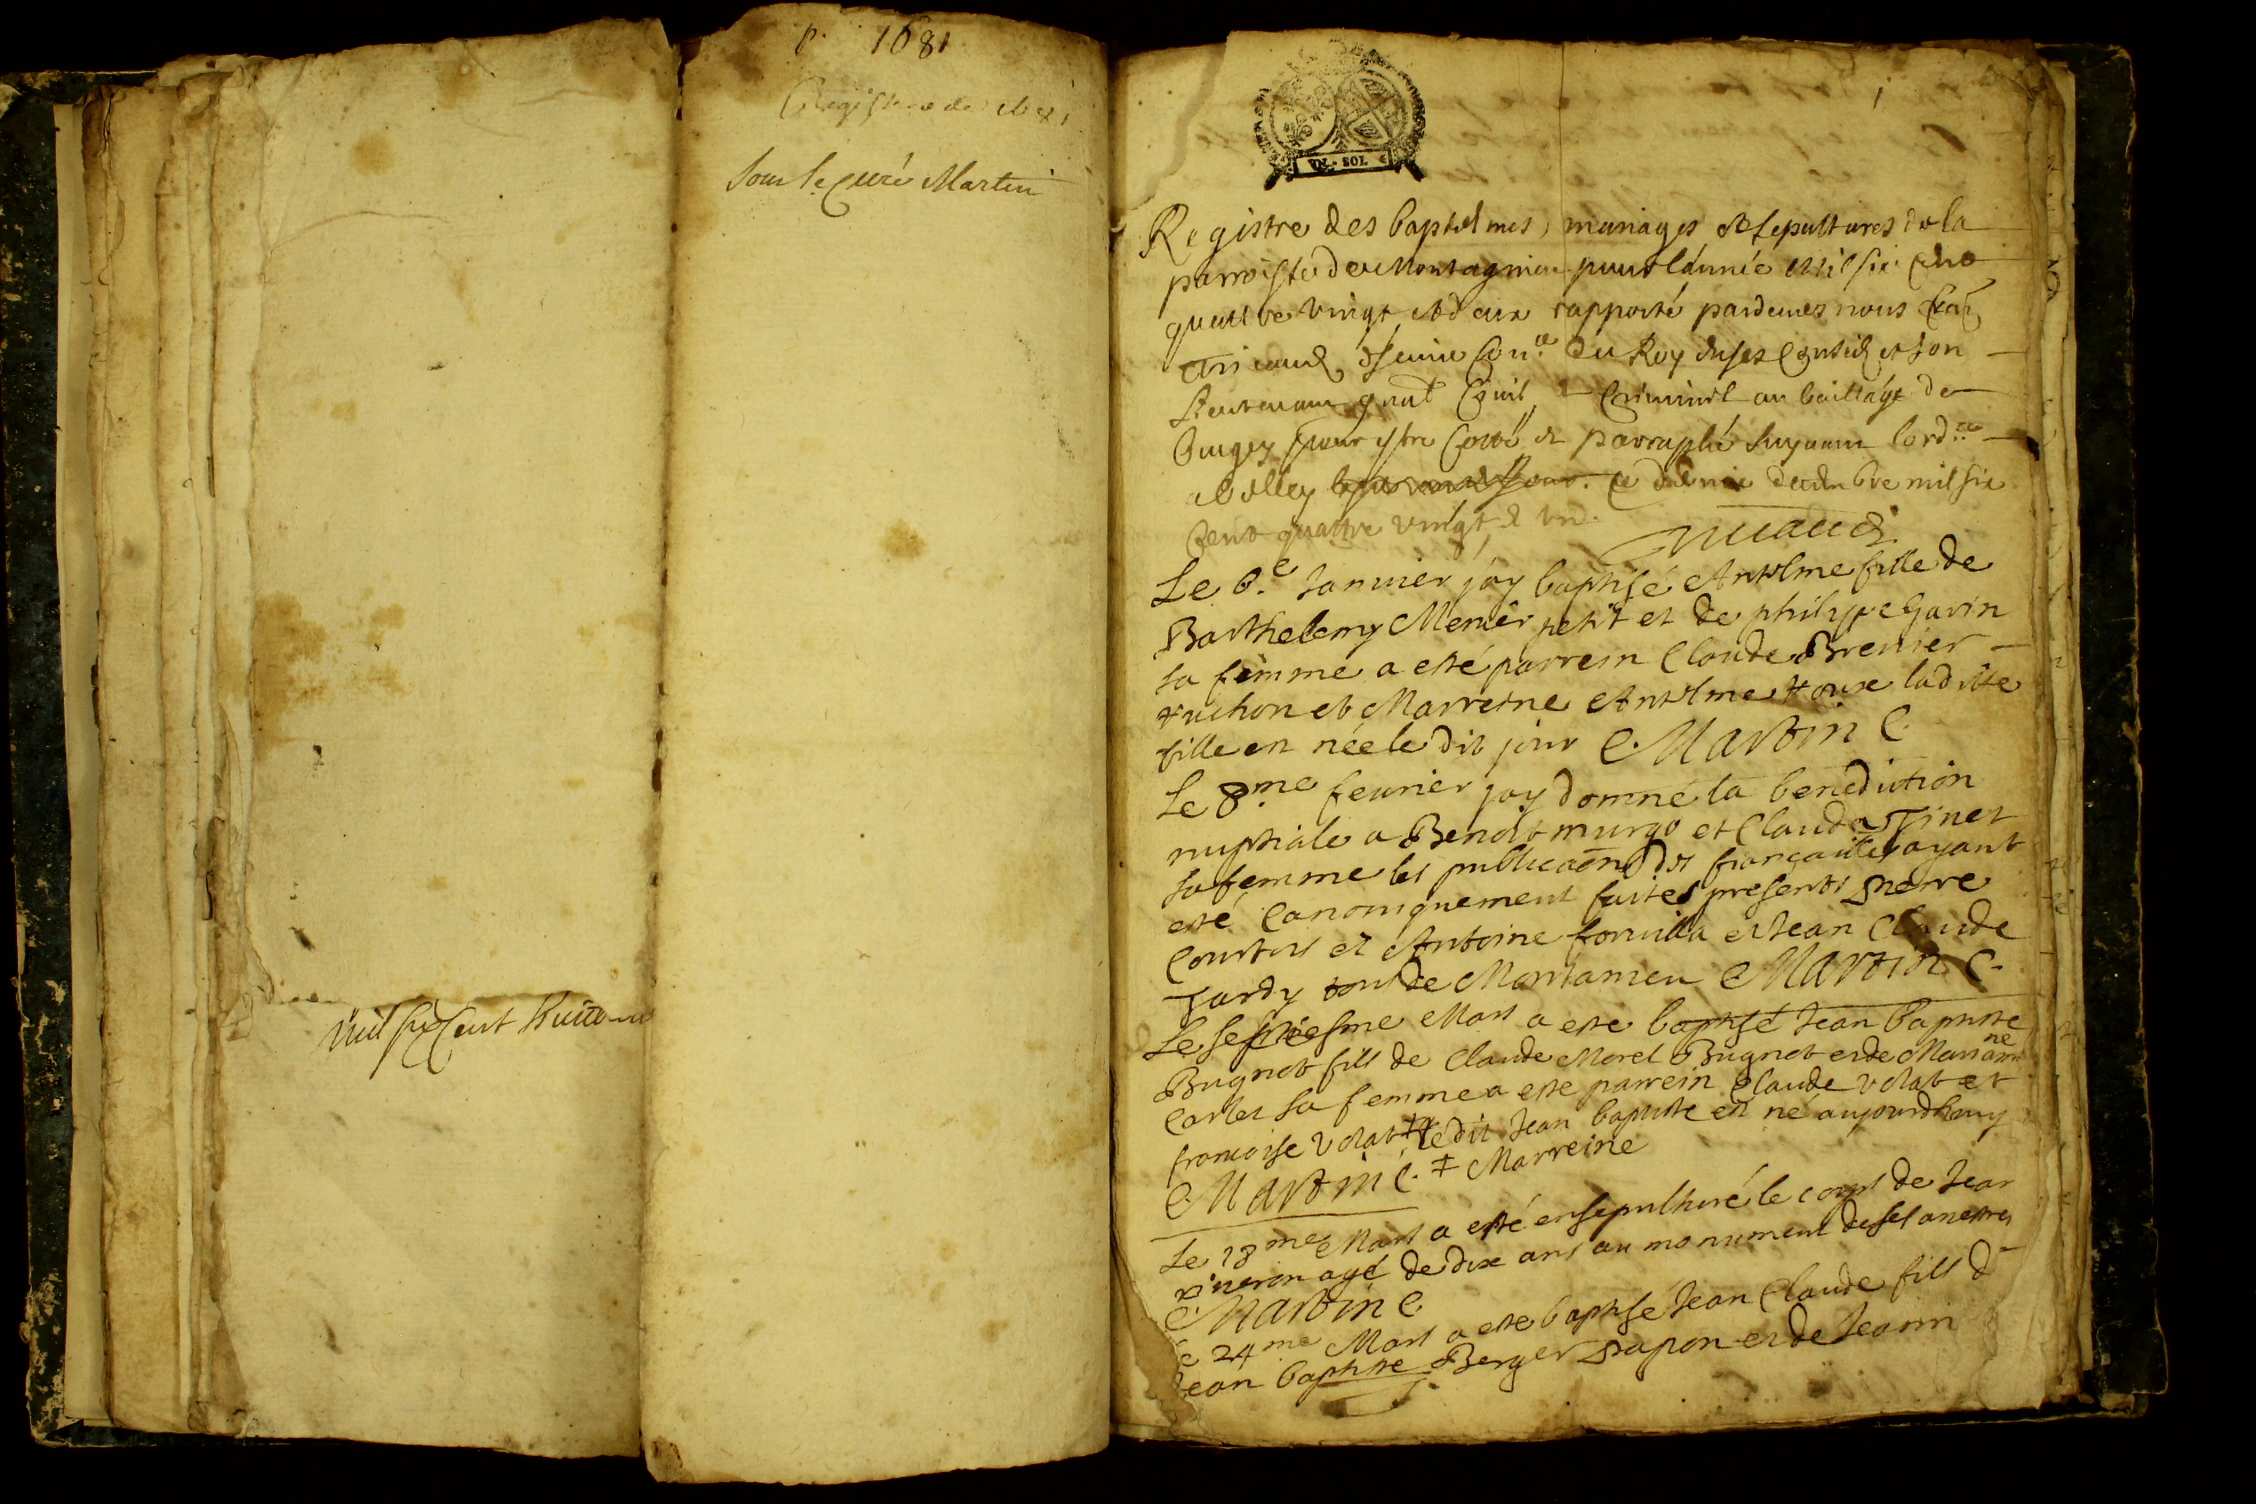 p. 1681
Registre de 1681
sous le Curé Martin
mil six Cent huitante
1
VN · SOL
Registre des baptesmes, mariages & sepultures de la
parroisse de Montagnieu pour lannée mil six cent
quatre vingt et deux rapporté pardevers nous
du Roy en ses Conseils et son
Lieutenant gnal Civil & Criminel au bailliage de
Bugey pour estre Cotté et parraphé suyvant lord.ce
a Belley ce dernier decembre mil six
Cent quattre vingt & un.
Le 6.e Januier jay baptisé Antelme fille de
Barthelemy Menier petit et de philippe Gavin
sa femme a esté parrein Claude Brenier
tuchon et Marreine Antelme ladite
fille en née le dit jour Martin C.
Le 8.me feurier jay donné la benediction
nuptiale a Benoit murgo et Clauda Tinet
sa femme les publicaõns des fiançailles ayant
esté Canoniquement faites presents pierre
Courtois et Antoine et Jean Claude
Tardy tous de Montanieu Martin C.
Le septiesme Mars a este baptisé Jean baptiste
Bugnot fils de Claude Morel Bugnot et de Marianne
Carlet sa femme a este parrein Claude Volat et
francoise Volat ‡ le dit Jean baptiste est né aujourdhuy
Martin C. ‡ Marreine
Le 18me Mars a esté ensepulturé le corps de Jean
agé de dix ans au monument de ses ancestres
Martin C.
Le 24me Mars a este baptisé Jean Claude fils d
Jean baptiste Berger papon et de Jeann